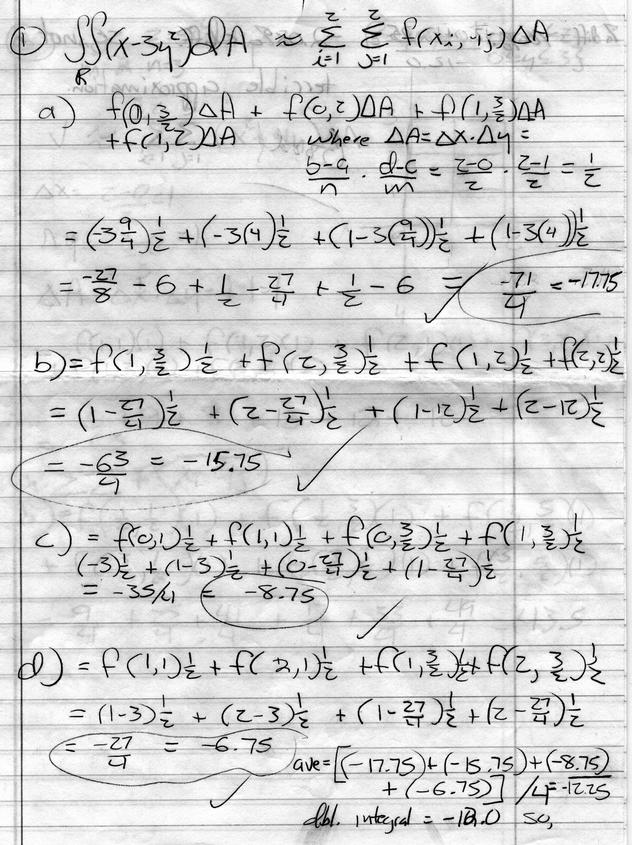 ① ∬_R (x-3y²)dA ≈ Σ_{i=1}^{2} Σ_{j=1}^{2} f(xi, yj)ΔA
a) f(0, 3/2)ΔA + f(0,2)ΔA + f(1, 3/2)ΔA
+ f(1,2)ΔA where ΔA = Δx·Δy =
(b-a)/n · (d-c)/m = (2-0)/2 · (2-1)/2 = 1/2
= (-3 9/4)1/2 + (-3(4))1/2 + (1-3(9/4))1/2 + (1-3(4))1/2
= -27/8 - 6 + 1/2 - 27/4 + 1/2 - 6 = -71/4 = -17.75
b) = f(1, 3/2)1/2 + f(2, 3/2)1/2 + f(1,2)1/2 + f(2,2)1/2
= (1-27/4)1/2 + (2-27/4)1/2 + (1-12)1/2 + (2-12)1/2
= -63/4 = -15.75
c) = f(0,1)1/2 + f(1,1)1/2 + f(0, 3/2)1/2 + f(1, 3/2)1/2
(-3)1/2 + (1-3)1/2 + (0-27/4)1/2 + (1-27/4)1/2
= -35/4 = -8.75
d) = f(1,1)1/2 + f(2,1)1/2 + f(1, 3/2)1/2 + f(2, 3/2)1/2
= (1-3)1/2 + (2-3)1/2 + (1-27/4)1/2 + (2-27/4)1/2
= -27/4 = -6.75
ave = [(-17.75)+(-15.75)+(-8.75)
+(-6.75)] /4 = -12.25
dbl. integral = -12.0 so,